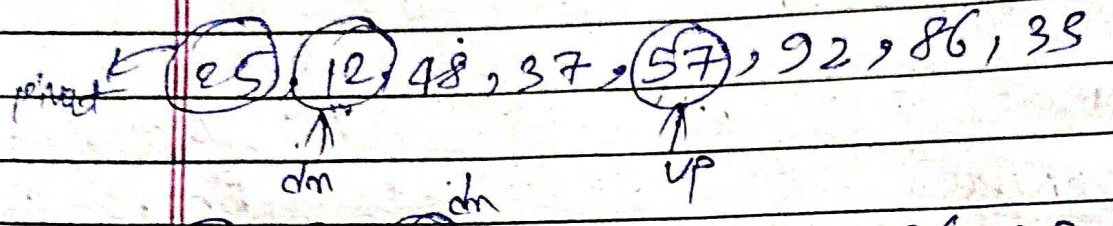 pivot 25, 12, 48, 37, 57, 92, 86, 33
dn up
dn